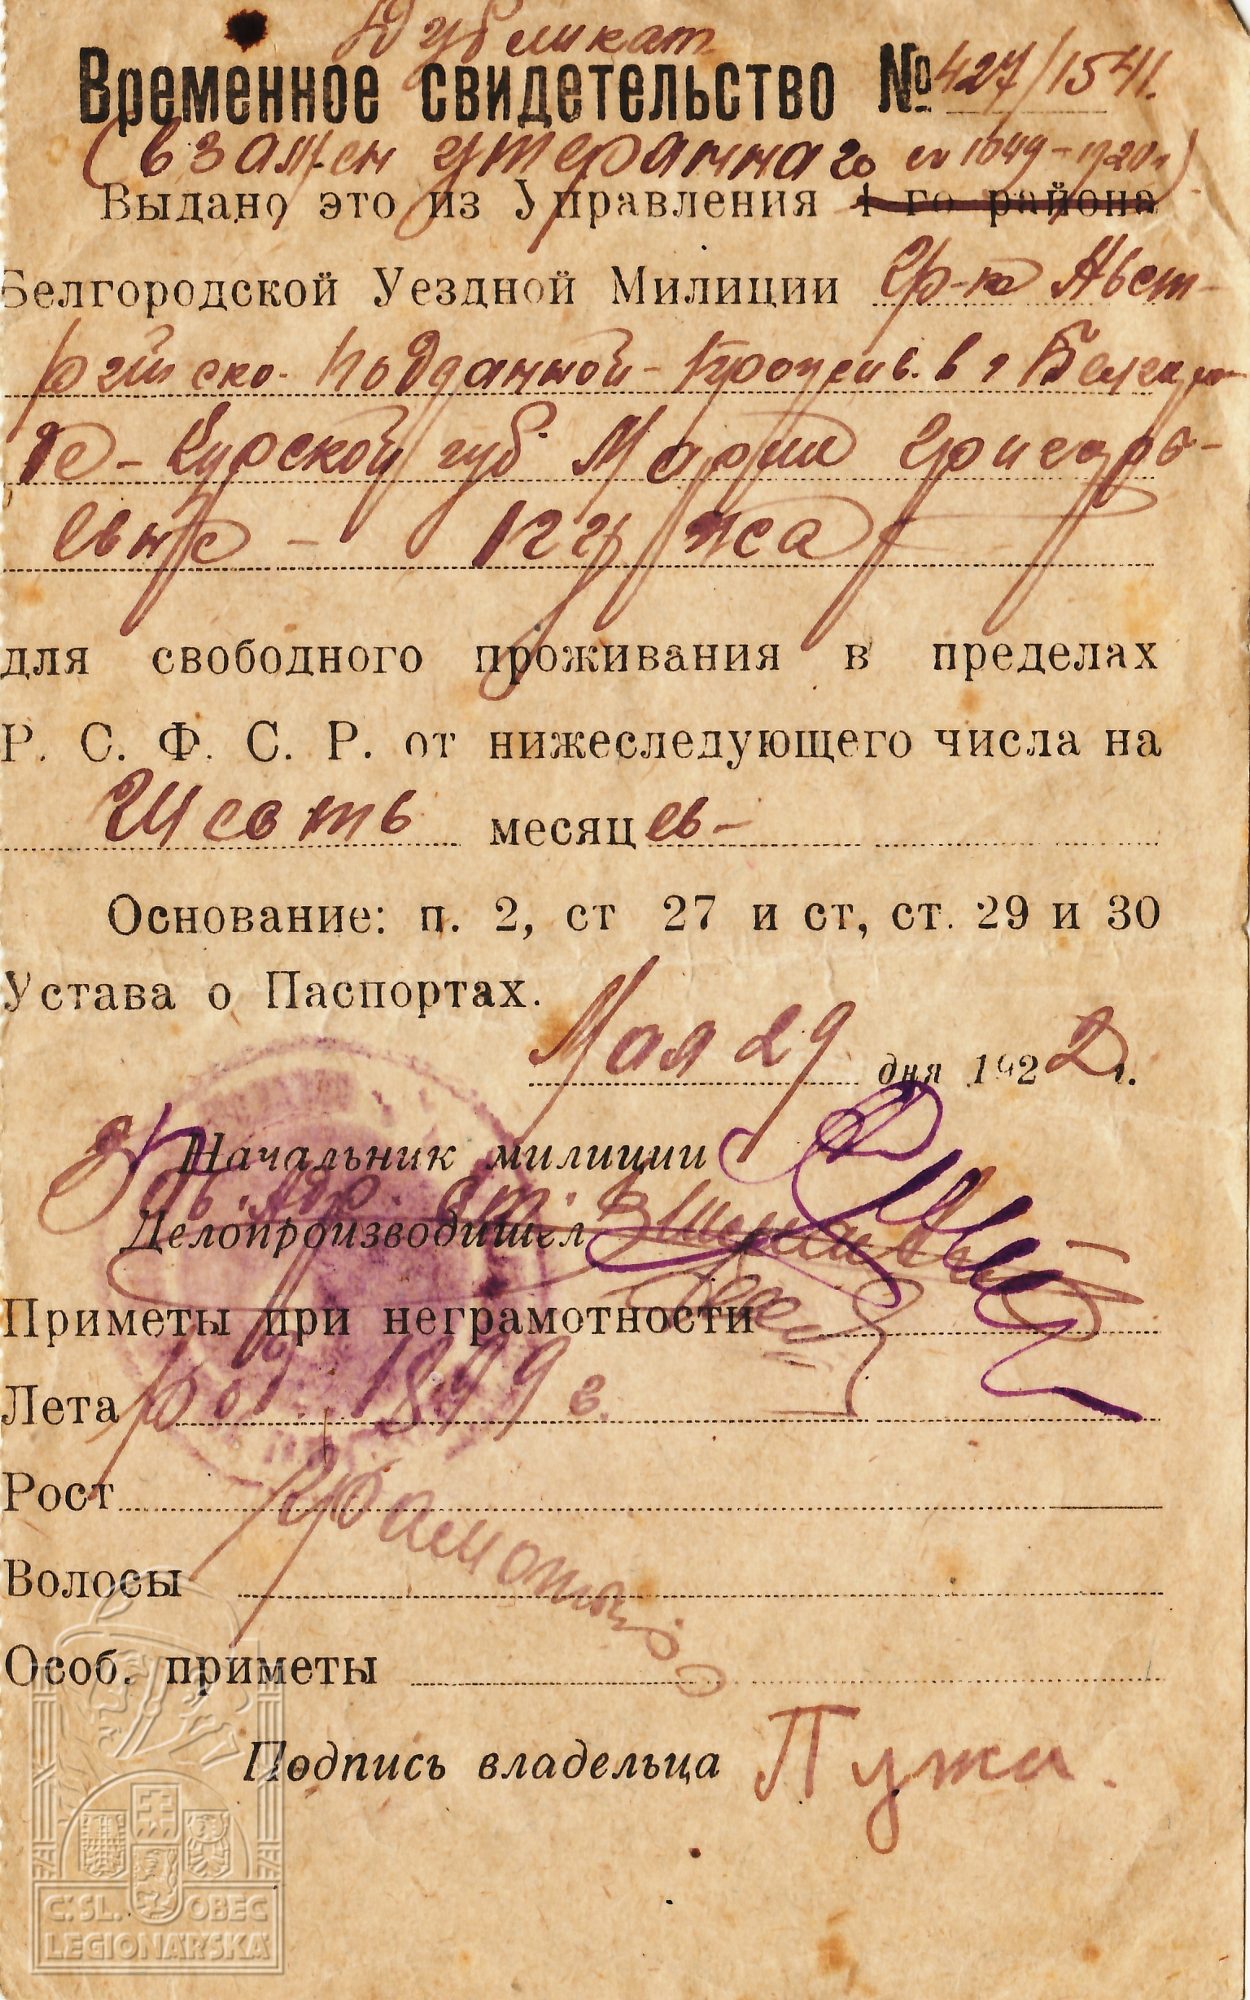 Дубликат
Временное свидетельство № 427/1541.
(взамен утеранного № 1049-1920г)
Выдано это из Управления 1-го района
Белгородской Уездной Милиции Гр-ке Авст-
рийско-подданной-прожив. в г Белгоро-
де-Курской губ Марии Григорь-
евне -
для свободного проживания в пределах
Р. С. Ф. С. Р. от нижеследующего числа на
Шесть месяцев-
Основание: п. 2, ст 27 и ст, ст. 29 и 30
Устава о Паспортах.
Мая 29 дня 1922г.
Начальник милиции
Делопроизводител
Приметы при неграмотности
Лета род. 1899 г.
Рост
Грамотна
Волосы
Особ. приметы
Подпись владельца Пужа.
Č.SL. OBEC
LEGIONÁŘSKÁ